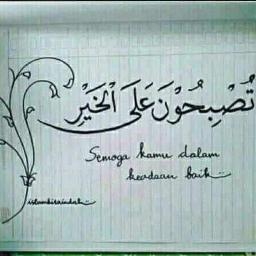 تُصْبِحُوْنَ عَلَى الْخَيْرِ
Semoga kamu dalam
keadaan baik
islamkitaindah